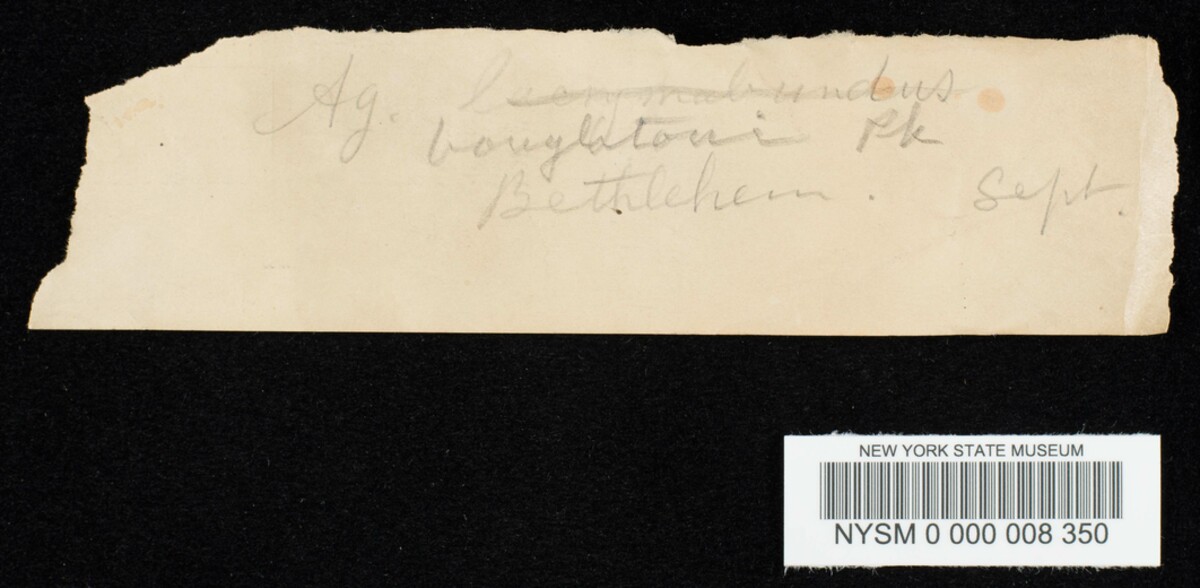 Ag. lacrymabundus
boughtoni Pk
Bethlehem. Sept.
NEW YORK STATE MUSEUM
NYSM 0 000 008 350